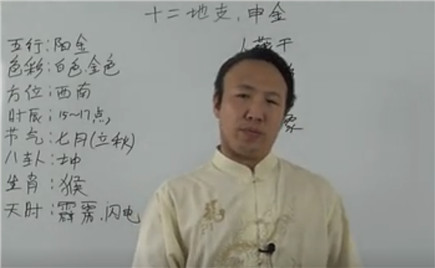 十二地支,申金
五行:阳金
色彩:白色.金色
方位:西南
时辰:15~17点,
节气:七月(立秋)
八卦:坤
生肖:猴
天时:霹雳.闪电